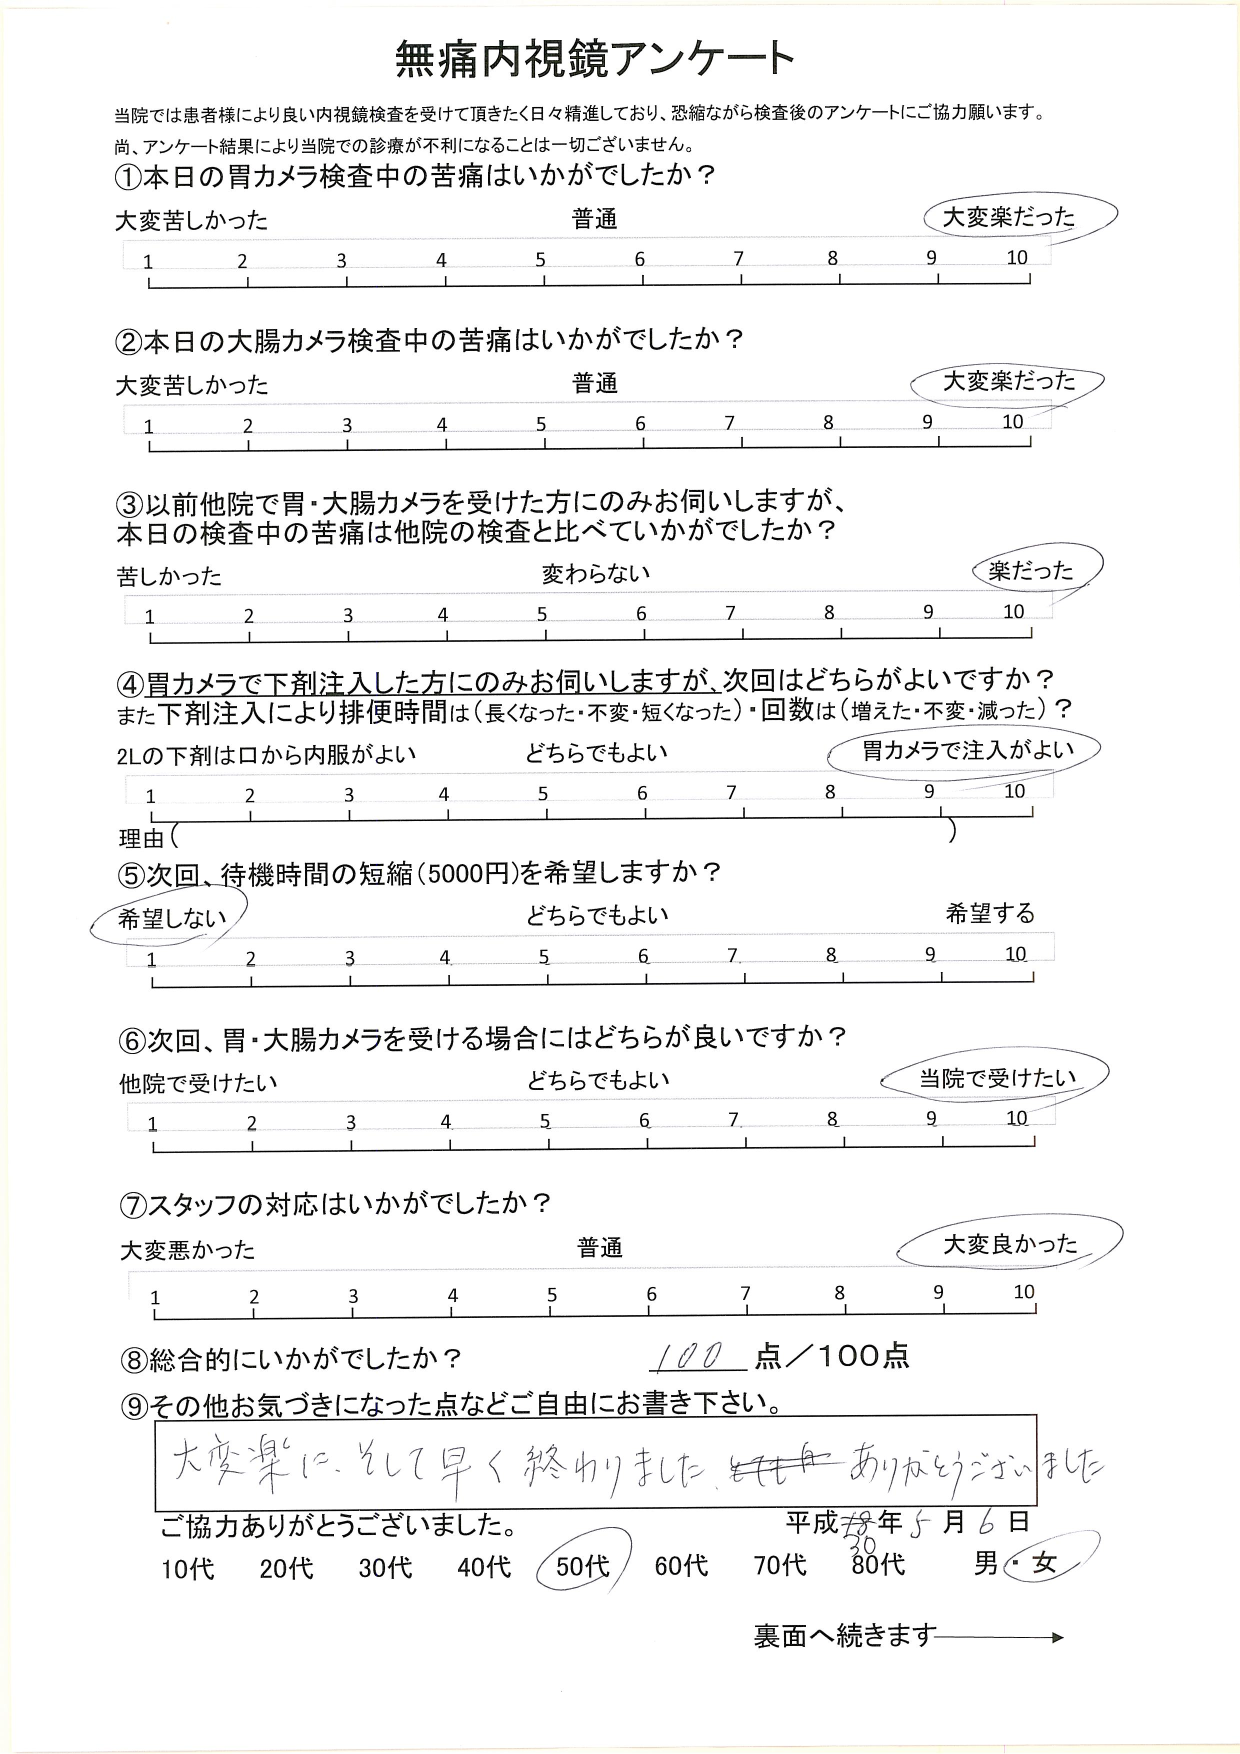 無痛内視鏡アンケート
当院では患者様により良い内視鏡検査を受けて頂きたく日々精進しており、恐縮ながら検査後のアンケートにご協力願います。
尚、アンケート結果により当院での診療が不利になることは一切ございません。
①本日の胃カメラ検査中の苦痛はいかがでしたか？
大変苦しかった 普通 大変楽だった
1 2 3 4 5 6 7 8 9 10
②本日の大腸カメラ検査中の苦痛はいかがでしたか？
大変苦しかった 普通 大変楽だった
1 2 3 4 5 6 7 8 9 10
③以前他院で胃・大腸カメラを受けた方にのみお伺いしますが、
本日の検査中の苦痛は他院の検査と比べていかがでしたか？
苦しかった 変わらない 楽だった
1 2 3 4 5 6 7 8 9 10
④胃カメラで下剤注入した方にのみお伺いしますが、次回はどちらがよいですか？
また下剤注入により排便時間は（長くなった・不変・短くなった）・回数は（増えた・不変・減った）？
2Lの下剤は口から内服がよい どちらでもよい 胃カメラで注入がよい
1 2 3 4 5 6 7 8 9 10
理由（ ）
⑤次回、待機時間の短縮（5000円）を希望しますか？
希望しない どちらでもよい 希望する
1 2 3 4 5 6 7 8 9 10
⑥次回、胃・大腸カメラを受ける場合にはどちらが良いですか？
他院で受けたい どちらでもよい 当院で受けたい
1 2 3 4 5 6 7 8 9 10
⑦スタッフの対応はいかがでしたか？
大変悪かった 普通 大変良かった
1 2 3 4 5 6 7 8 9 10
⑧総合的にいかがでしたか？ 100 点／100点
⑨その他お気づきになった点などご自由にお書き下さい。
大変楽に、そして早く終わりました、ありがとうございました
ご協力ありがとうございました。 平成18年5月6日
30
10代 20代 30代 40代 50代 60代 70代 80代 男・女
裏面へ続きます